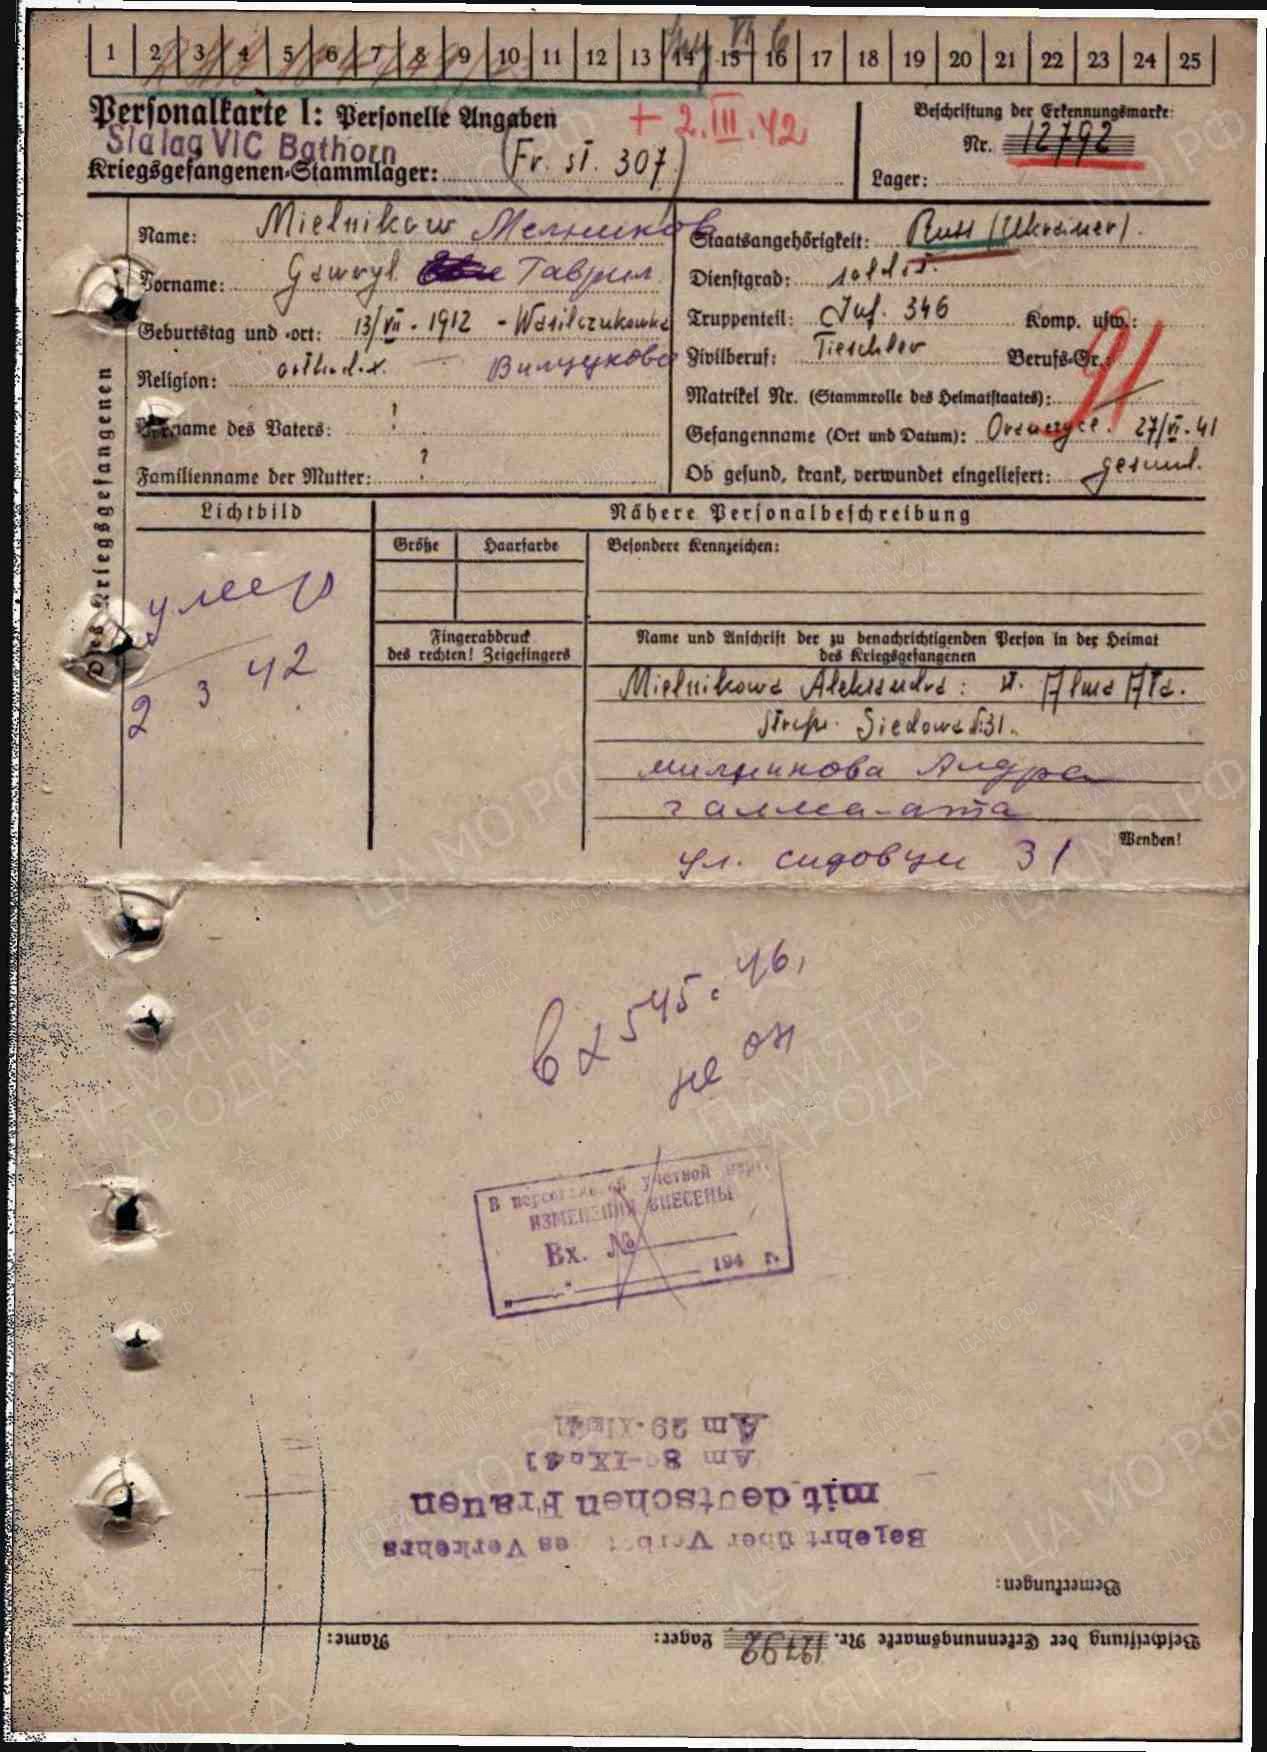 1 2 3 4 5 6 7 8 9 10 11 12 13 14 15 16 17 18 19 20 21 22 23 24 25
Personalkarte I: Personelle Angaben
+ 2.III.42
Beschriftung der Erkennungsmarke:
Nr. 12792
Stalag VIC Bathorn
Kriegsgefangenen-Stammlager: (Fr. st. 307)
Lager:
Des Kriegsgefangenen
Name: Mielnikow Мельников
Vorname: Gawryl Гаврил
Geburtstag und -ort: 13/VII. 1912 - Wasilczukowka
Religion: orthodox. Вилчуково
Vorname des Vaters: ?
Familienname der Mutter: ?
Staatsangehörigkeit: Russ (Ukrainer).
Dienstgrad: soldat.
Truppenteil: Inf. 346 Komp. usw.:
Zivilberuf: Tischler Berufs-Gr.: 91
Matrikel Nr. (Stammrolle des Heimatstaates): —
Gefangenname (Ort und Datum): 27/VI. 41
Ob gesund, krank, verwundet eingeliefert: gesund.
Lichtbild
Nähere Personalbeschreibung
Größe Haarfarbe Besondere Kennzeichen:
Fingerabdruck
des rechten! Zeigefingers
Name und Anschrift der zu benachrichtigenden Person in der Heimat
des Kriegsgefangenen
умер
2 3 42
Mielnikowa Aleksandra: st. Alma Ata.
Siedowa №31.
милникова Андра
г алма-ата
Wenden!
ул. сидовци 31
вх 545. 46,
не он
В персональной учетной карт.
ИЗМЕНЕНИЯ ВНЕСЕНЫ
Вх. №
" " 194 г.
Beschriftung der Erkennungsmarke Nr. 12792 Lager: Name:
Bemerkungen:
Belehrt über Verbot des Verkehrs
mit deutschen Frauen
Am 8.-IX.41
ЦАМО РФ
ПАМЯТЬ НАРОДА